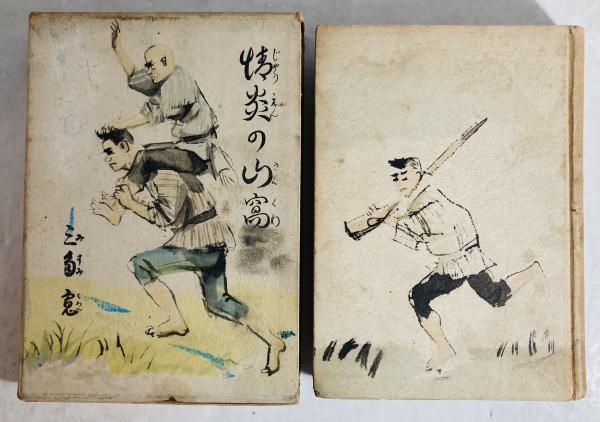 情炎の山窩
じやうえん
さんくわ
三角寛
みすみ